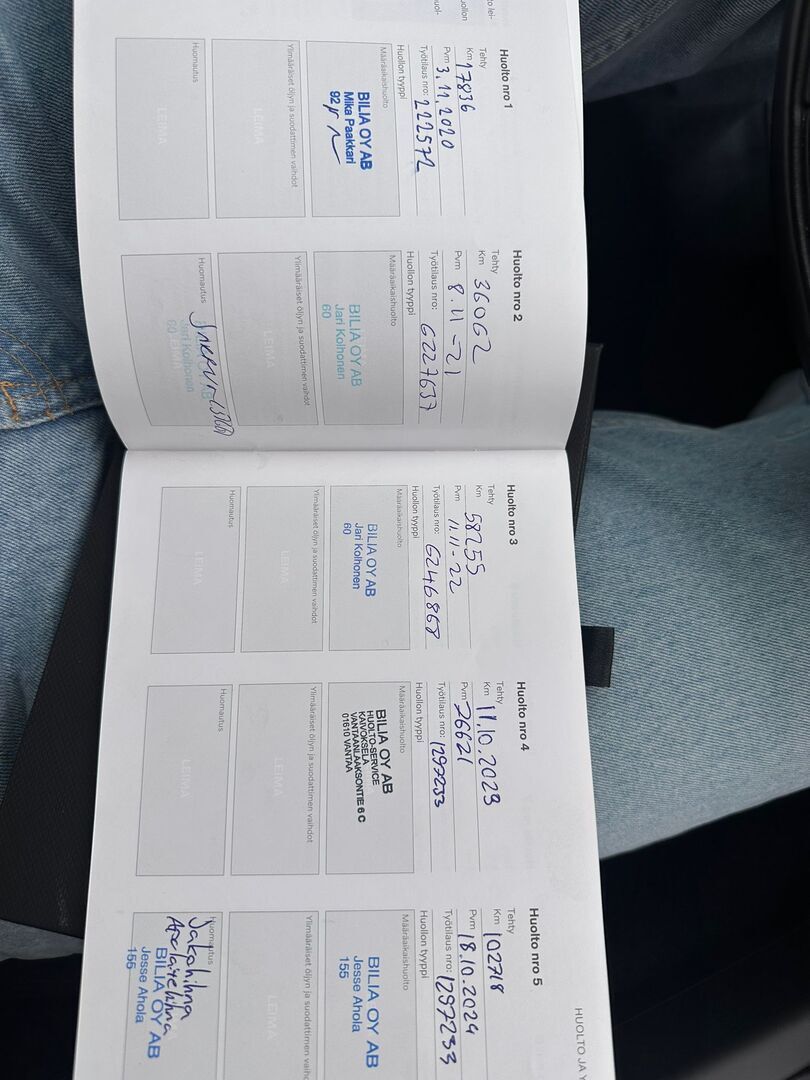 Huolto nro 1
Tehty
Km 17836
Pvm 3.11.2020
Työtilaus nro: 222572
Huollon tyyppi
Määräaikaishuolto
BILIA OY AB
Mika Paakkari
92
Ylimääräiset öljyn ja suodattimen vaihdot
LEIMA
Huomautus
LEIMA
Huolto nro 2
Tehty
Km 36062
Pvm 8.11-21
Työtilaus nro: 6227637
Huollon tyyppi
Määräaikaishuolto
BILIA OY AB
Jari Kolhonen
60
Ylimääräiset öljyn ja suodattimen vaihdot
LEIMA
Huomautus
Jari Kolhonen
60
LEIMA
Huolto nro 3
Tehty
Km 58255
Pvm 11.11-22
Työtilaus nro: 6246868
Huollon tyyppi
Määräaikaishuolto
BILIA OY AB
Jari Kolhonen
60
Ylimääräiset öljyn ja suodattimen vaihdot
LEIMA
Huomautus
LEIMA
Huolto nro 4
Tehty
Km 11.10.2023
Pvm 76621
Työtilaus nro: 1297233
Huollon tyyppi
Määräaikaishuolto
BILIA OY AB
HUOLTO-SERVICE
KAIVOKSELA
VANTAANLAAKSONTIE 6 C
01610 VANTAA
Ylimääräiset öljyn ja suodattimen vaihdot
LEIMA
Huomautus
LEIMA
HUOLTO JA Y
Huolto nro 5
Tehty
Km 102718
Pvm 18.10.2024
Työtilaus nro: 1297233
Huollon tyyppi
Määräaikaishuolto
BILIA OY AB
Jesse Ahola
155
Ylimääräiset öljyn ja suodattimen vaihdot
LEIMA
Huomautus
Jakohihna
Apulaitehihna
BILIA OY AB
Jesse Ahola
155